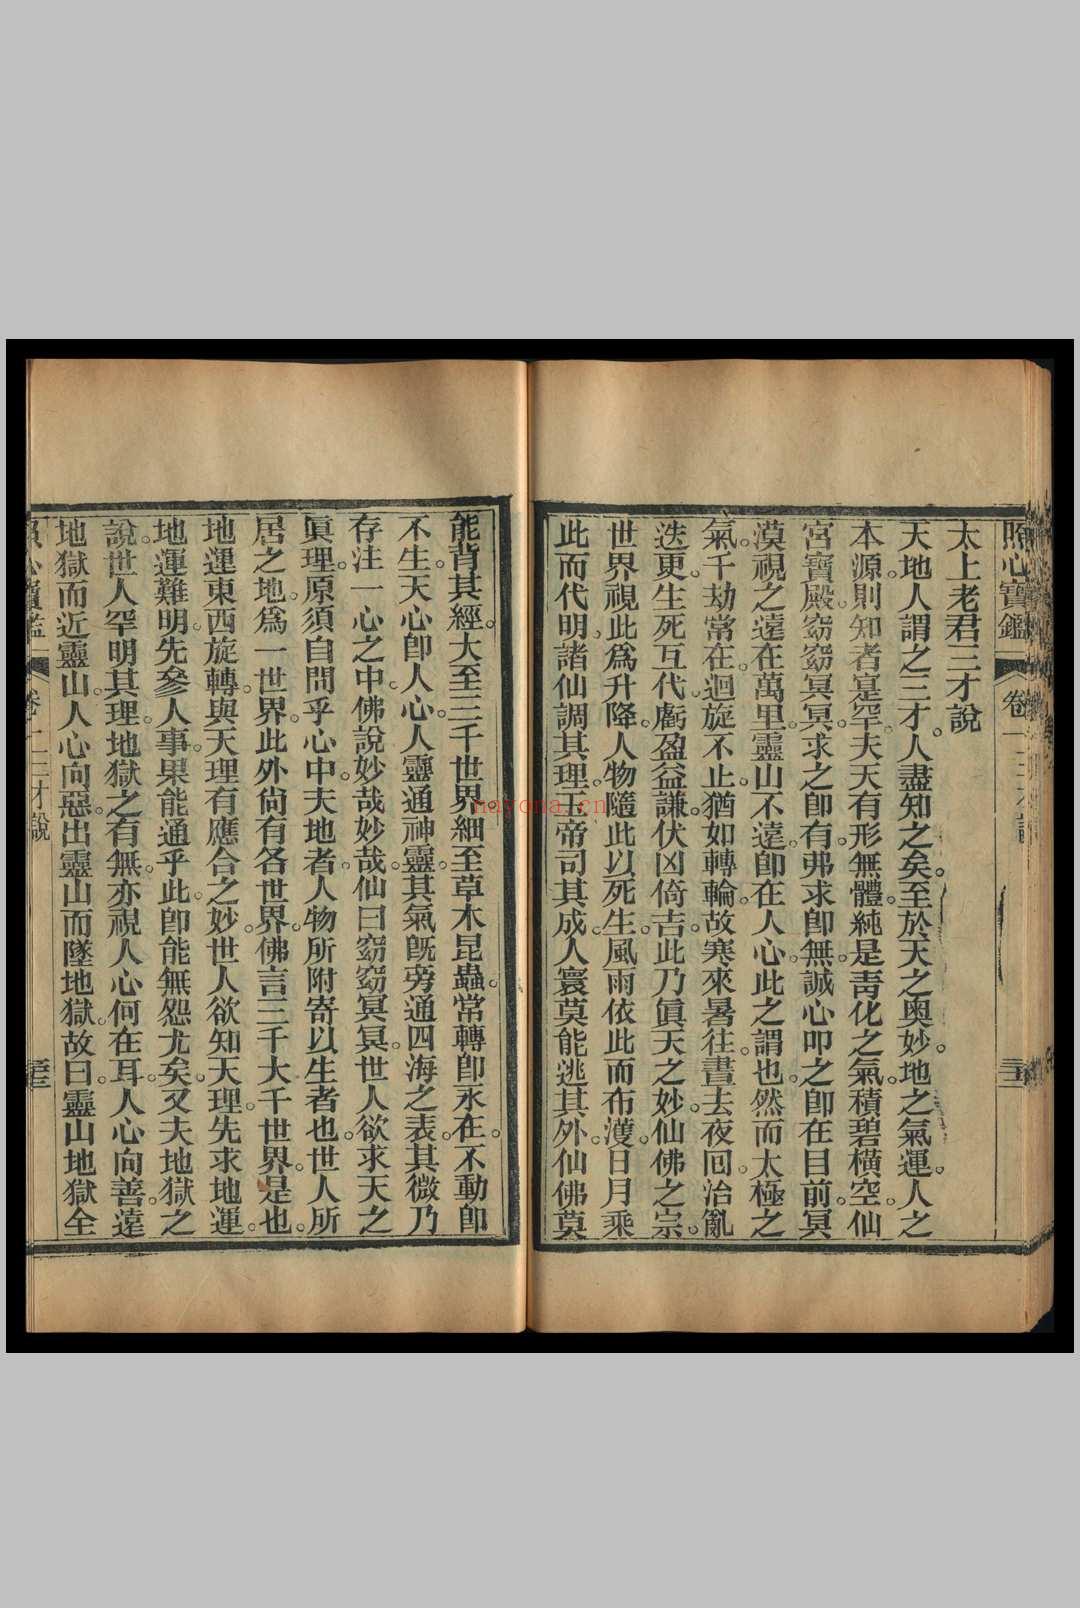 照心寶鑑 卷一 三才說
太上老君三才說
天地人謂之三才。人盡知之矣。至於天之奧妙。地之氣運。人之
本源。則知者寔罕。夫天有形無體。純是靑化之氣。積碧橫空。仙
宮寶殿。窈窈冥冥。求之卽有。弗求卽無。誠心叩之。卽在目前。冥
漠視之。遠在萬里。靈山不遠。卽在人心。此之謂也。然而太極之
氣。千劫常在。迴旋不止。猶如轉輪。故寒來暑往。晝去夜回。治亂
迭更。生死互代。虧盈益謙。伏凶倚吉。此乃眞天之妙。仙佛之宗。
世界視此爲升降。人物隨此以死生。風雨依此而布濩。日月乘
此而代明。諸仙調其理。五帝司其成。人寰莫能逃其外。仙佛莫
能背其經。大至三千世界。細至草木昆蟲。常轉卽永在。不動卽
不生。天心卽人心。人靈通神靈。其氣旣旁通四海之表。其微乃
存注一心之中。佛說妙哉妙哉。仙曰窈窈冥冥。世人欲求天之
眞理。原須自問乎心中。夫地者。人物所附寄以生者也。世人所
居之地。爲一世界。此外尙有各世界。佛言三千大千世界。是也。
地運東西旋轉。與天理有應合之妙。世人欲知天理。先求地運。
地運難明。先參人事。果能通乎此。卽能無怨尤矣。又夫地獄之
說。世人罕明其理。地獄之有無。亦視人心何在耳。人心向善。遠
地獄而近靈山。人心向惡。出靈山而墜地獄。故曰。靈山地獄全
照心寶鑑 卷一 三才說
nayona.cn